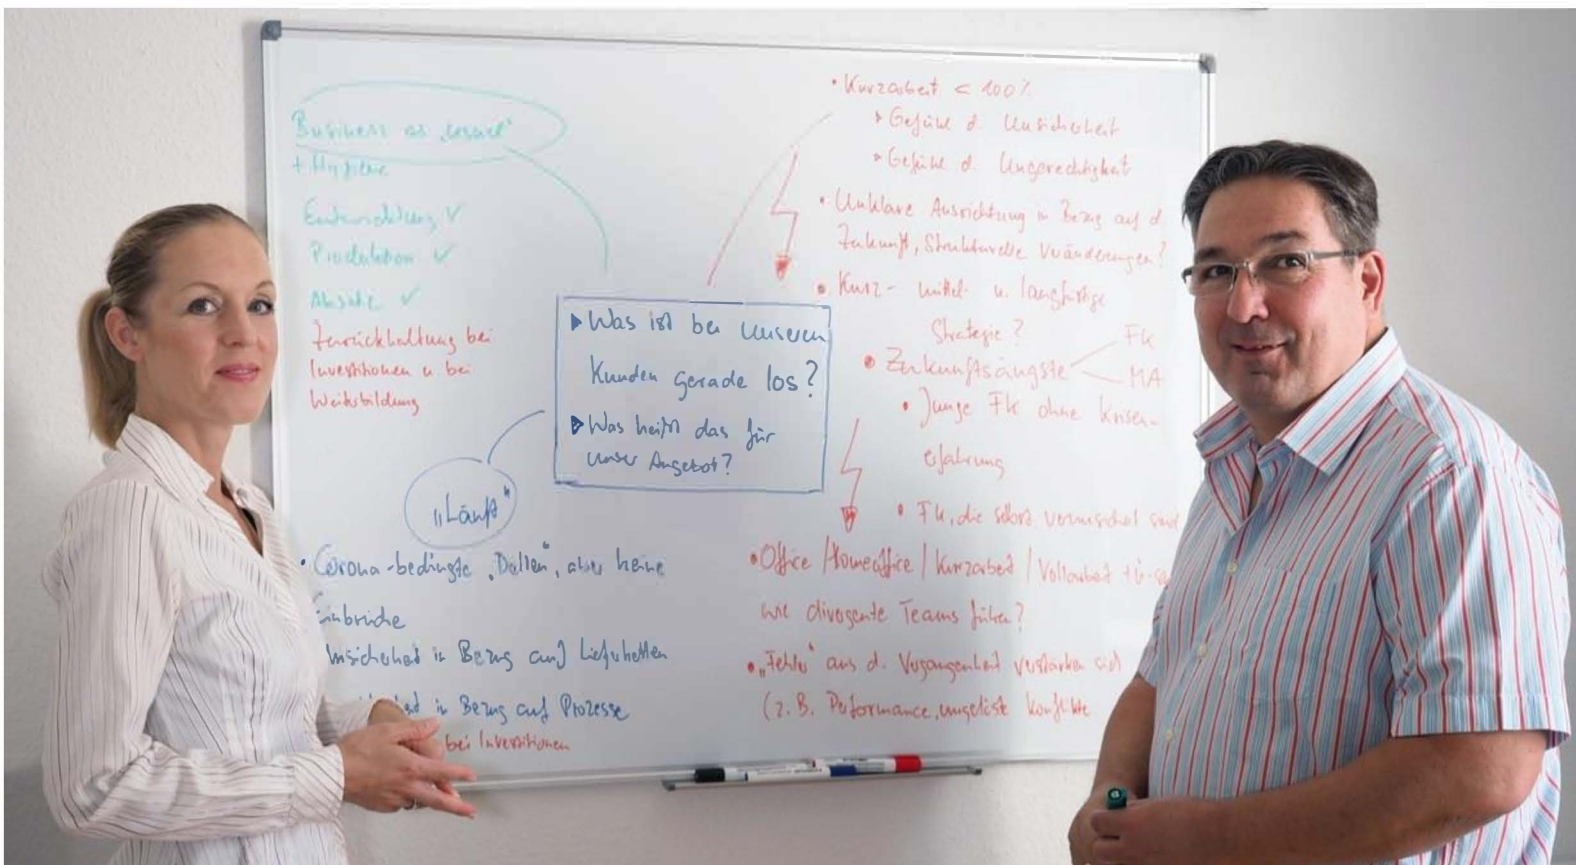 Business as usual"
+ Hygiene
Entwicklung ✓
Produktion ✓
Absatz ✓
Zurückhaltung bei
Investitionen u. bei
Weiterbildung
▶ Was ist bei unseren
Kunden gerade los?
▶ Was heißt das für
unser Angebot?
„Läuft"
• Corona-bedingte „Dellen", aber keine
Einbrüche
Unsicherheit in Bezug auf Lieferketten
in Bezug auf Prozesse
bei Investitionen
• Kurzarbeit < 100%
▸ Gefühl d. Unsicherheit
▸ Gefühl d. Ungerechtigkeit
• Unklare Ausrichtung in Bezug auf d.
Zukunft, Strukturelle Veränderungen?
• Kurz- mittel- u. langfristige
Strategie?
• Zukunftsängste
FK
MA
• Junge FK ohne Krisen-
erfahrung
• FK, die selbst verunsichert sind
• Office / Homeoffice / Kurzarbeit / Vollarbeit
wie divergente Teams führen?
• „Fehler" aus d. Vergangenheit verstärken sich
(z.B. Performance, ungelöste Konflikte